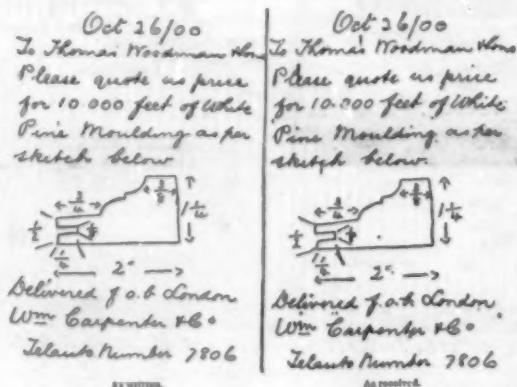 Oct 26/00
To Thomas Woodman & Sons
Please quote us price
for 10.000 feet of White
Pine Moulding as per
sketch below
3/4
3/8
1 1/4
1/2
1/4
2"
Delivered f.o.b London
Wm Carpenter & Co
Telauto Number 7806
As written.
Oct 26/00
To Thomas Woodman & Sons
Please quote us price
for 10.000 feet of White
Pine Moulding as per
sketch below.
3/4
3/8
1 1/4
1/2
1/4
2"
Delivered f.o.b London
Wm Carpenter & Co
Telauto Number 7806
As received.